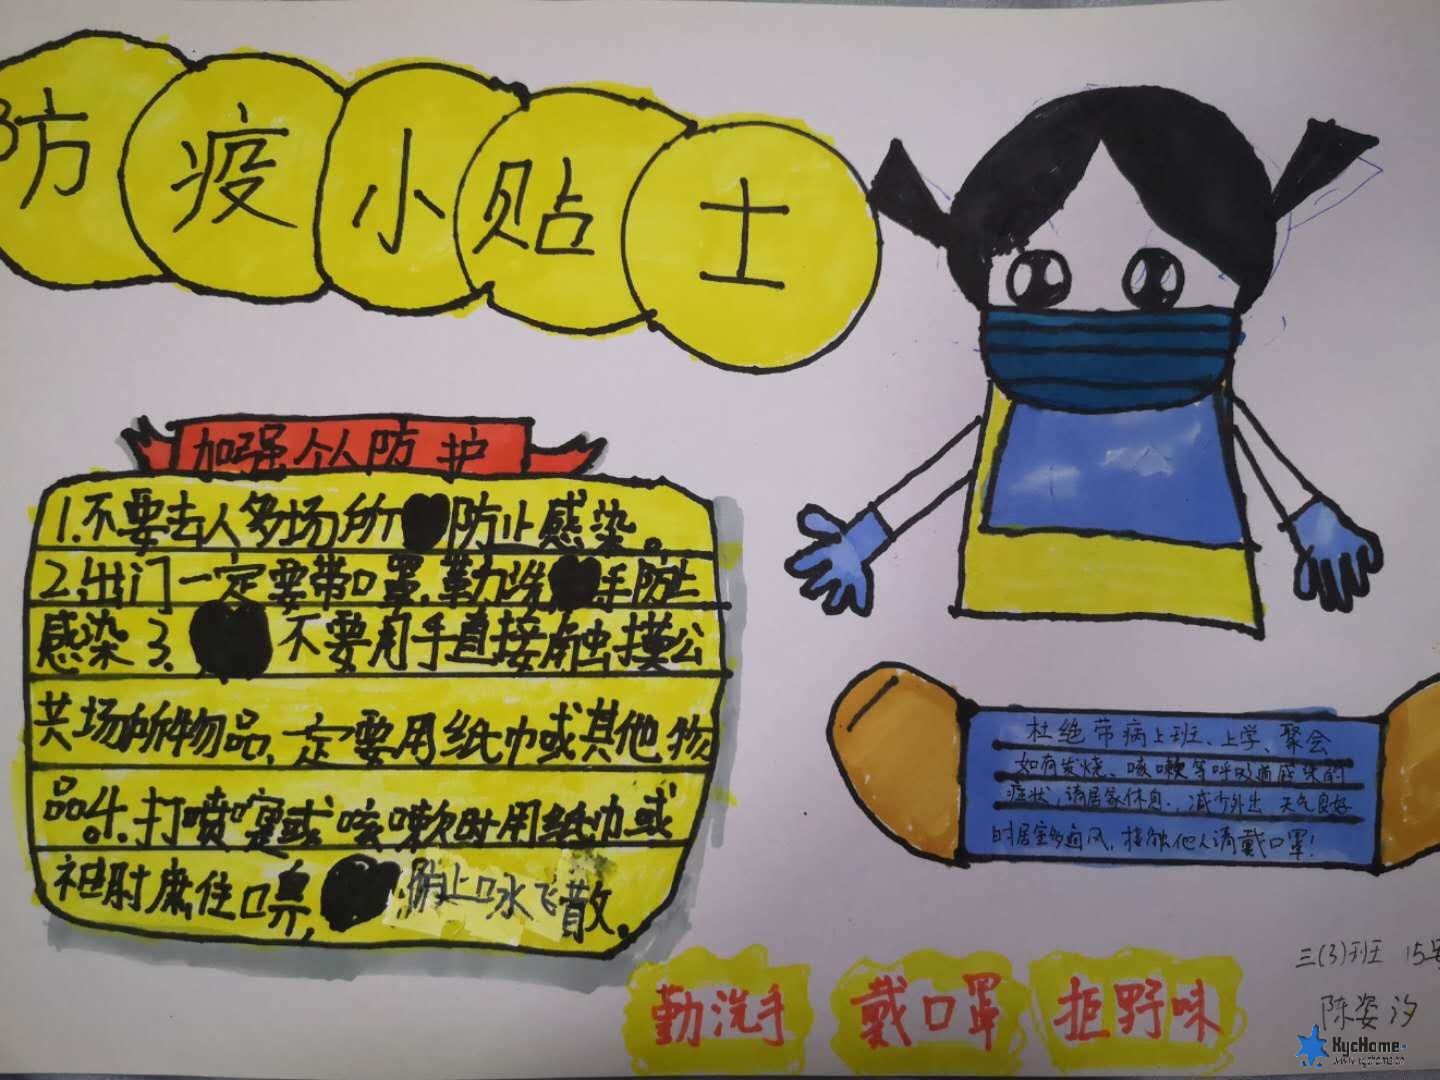 防疫小贴士
加强个人防护
1.不要去人多场所防止感染。
2.出门一定要带口罩,勤洗手防止
感染3.不要用手直接触摸公
共场所物品,一定要用纸巾或其他物
品。4.打喷嚏或咳嗽时用纸巾或
袖肘遮住口鼻,防止口水飞散。
杜绝带病上班、上学、聚会
如有发烧、咳嗽等呼吸道感染的
症状,请居家休息,减少外出,天气良好
时居室多通风,接触他人请戴口罩!
勤洗手 戴口罩 拒野味
三(3)班 15号
陈姿汐
KycHome
www.kychome.cn